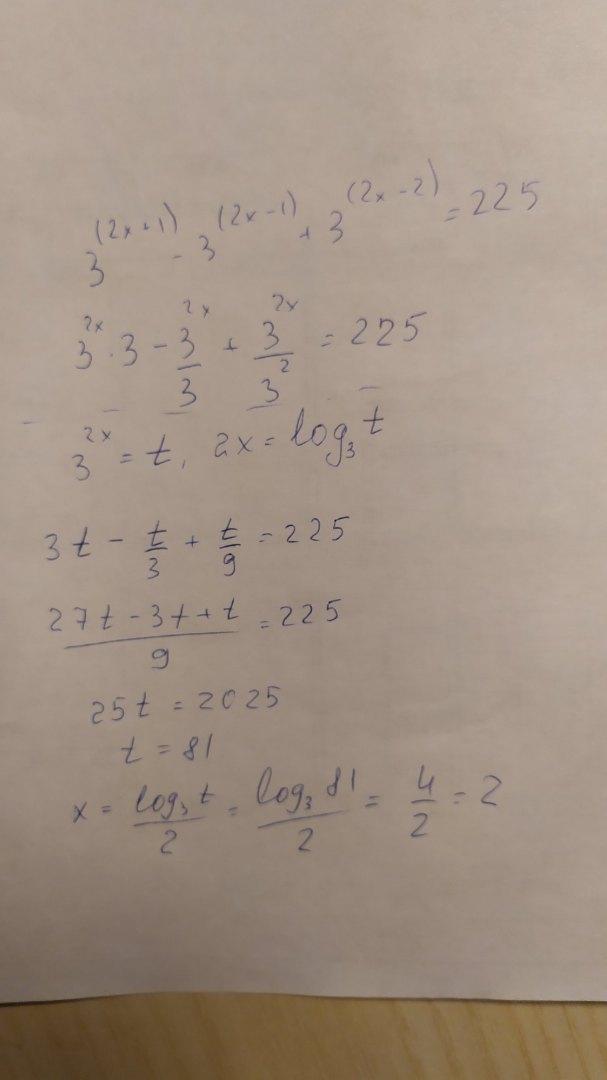 3^(2x+1) - 3^(2x-1) + 3^(2x-2) = 225
3^2x · 3 - 3^2x/3 + 3^2x/3^2 = 225
3^2x = t, 2x = log₃ t
3t - t/3 + t/9 = 225
(27t - 3t + t)/9 = 225
25t = 2025
t = 81
x = log₃ t/2 = log₃ 81/2 = 4/2 = 2